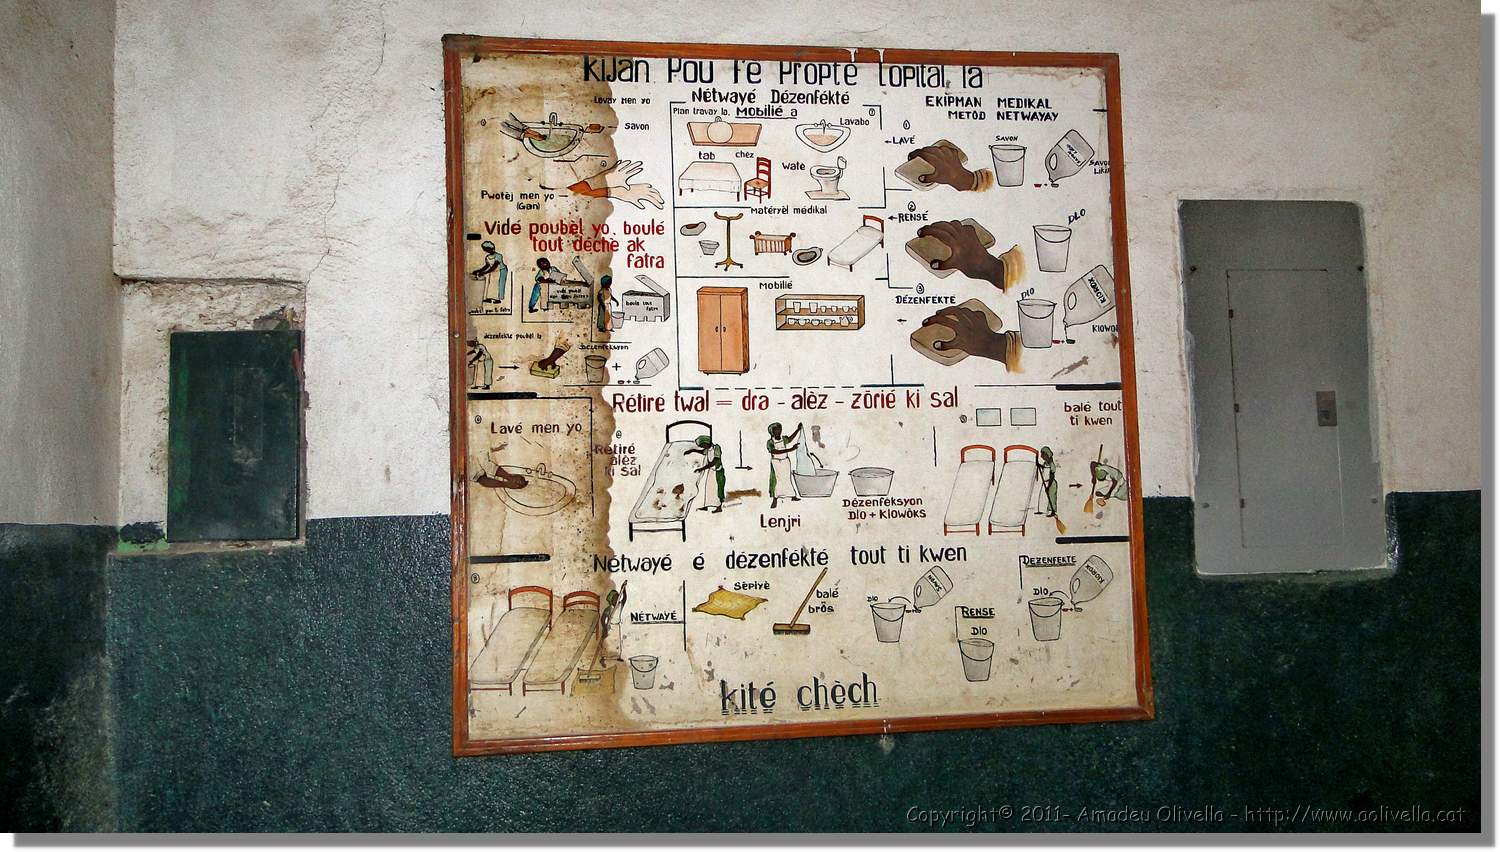 Kijan Pou Fè Propte Lopital la
Lavay Men yo
Savon
Pwotèj men yo
(Gan)
Vidé poubèl yo, boulé
tout déchè ak
fatra
vidé poubèl
boule tout
fatra
dézenfekte poubèl la
Dézenfeksyon
+
Nétwayé Dézenfékté
Plan travay la. Mobilié a
Lavabo
tab
chèz
Wate
Matéryèl médikal
Mobilié
EKIPMAN MEDIKAL
METOD NETWAYAY
① LAVÉ
SAVON
SAVON
② RENSÉ
DLO
③ DÉZENFEKTE
Dlo
KLOWOX
Rétiré twal = dra - alèz - zòriè ki sal
Lavé men yo
Rétiré
alèz
ki sal
Lenjri
Dézenfeksyon
Dlo + Klowòks
balé tout
ti kwen
Nétwayé é dézenfékté tout ti kwen
NÉTWAYÉ
Sèpiyè
balé
bròs
DLO
SAVON
RENSE
Dlo
DEZENFEKTE
DLO
KLOROX
kité chèch
Copyright© 2011- Amadeu Olivella - http://www.aolivella.cat